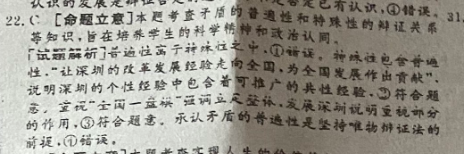 认识的发展是辩证否定的
已有认识,④错误。
22.C 【命题立意】本题考查矛盾的普遍性和特殊性的辩证关系 31.
等知识,旨在培养学生的科学精神和政治认同。
【试题解析】普遍性寓于特殊性之中,①错误。特殊性包含普遍
性,“让深圳的改革发展经验走向全国,为全国发展作出贡献”,
说明深圳的个性经验中包含着可推广的共性经验,②符合题
意。重视“全国一盘棋”强调立足整体,发展深圳说明重视部分
的作用,③符合题意。承认矛盾的普遍性是坚持唯物辩证法的
前提,④错误。